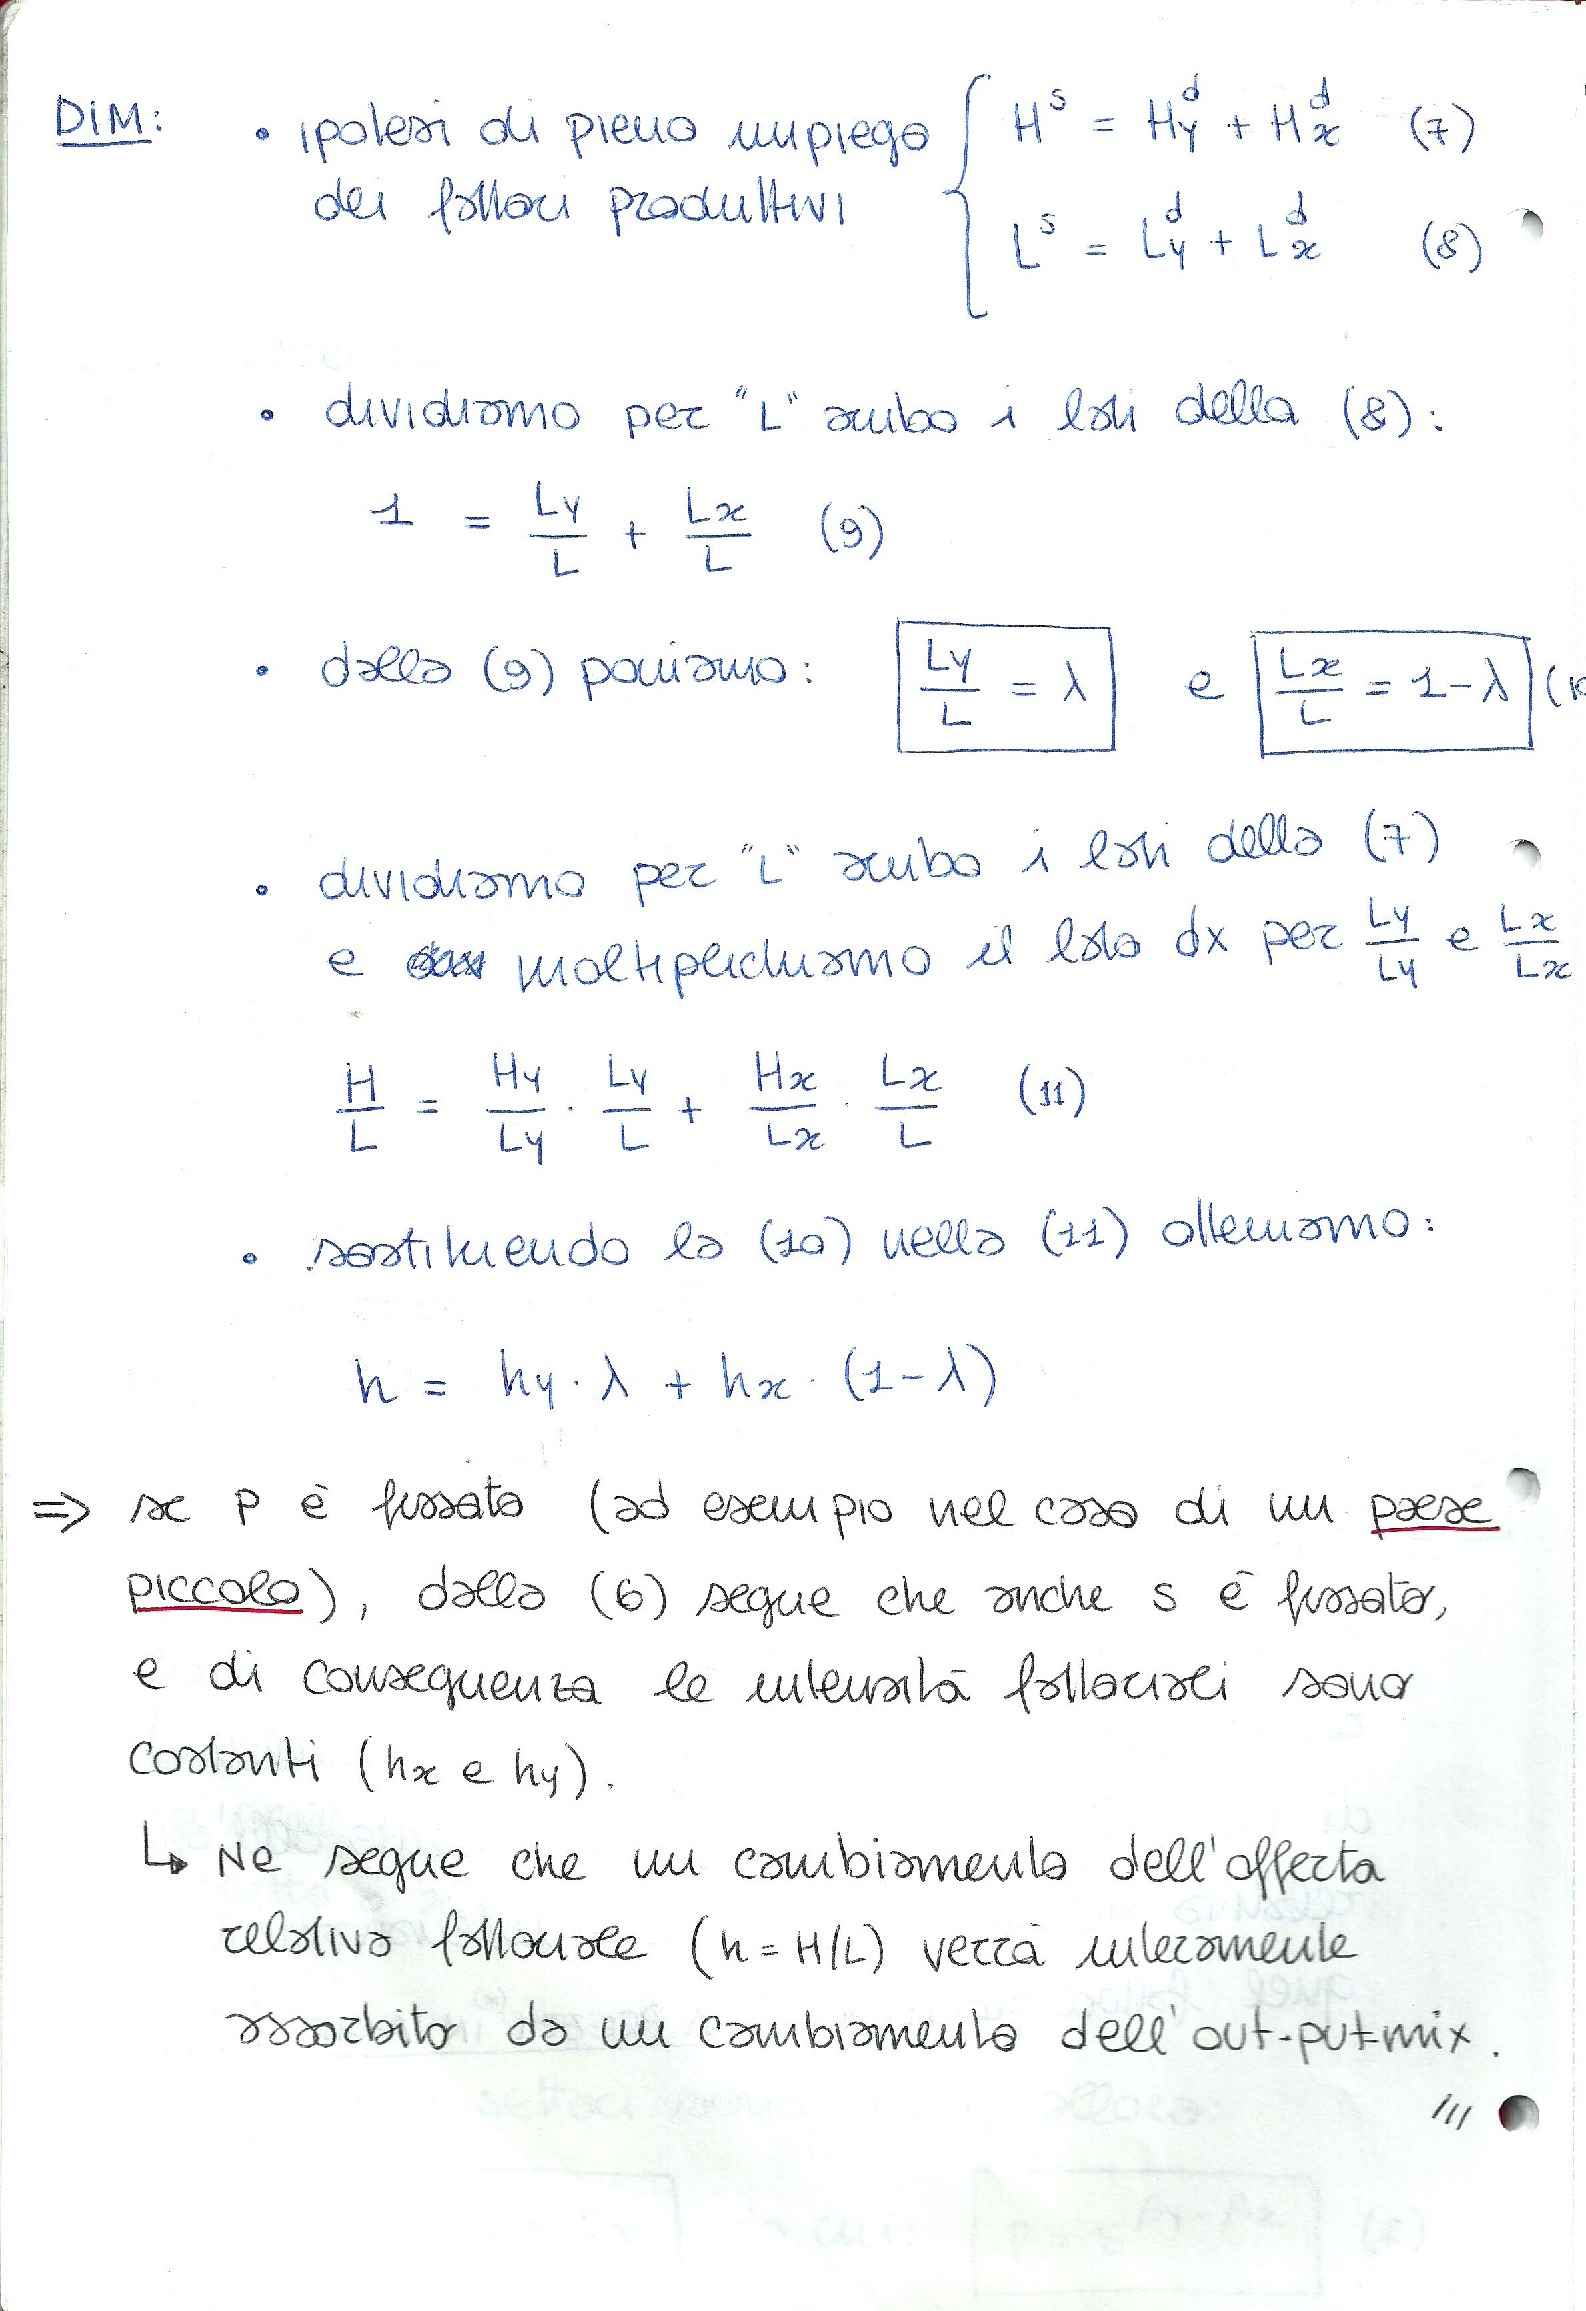 DIM: • ipotesi di pieno impiego { H^s = H_y^d + H_x^d (7)
dei fattori produttivi L^s = L_y^d + L_x^d (8)
• dividiamo per "L" ambo i lati della (8):
1 = Ly/L + Lx/L (9)
• dalla (9) poniamo: Ly/L = λ e Lx/L = 1-λ (10
• dividiamo per "L" ambo i lati della (7)
e moltiplichiamo il lato dx per Ly/Ly e Lx/Lx
H/L = Hy/Ly · Ly/L + Hx/Lx · Lx/L (11)
• sostituendo la (10) nella (11) otteniamo:
h = hy · λ + hx · (1-λ)
⇒ se P è fissato (ad esempio nel caso di un paese
piccolo), dalla (6) segue che anche s è fissato,
e di conseguenza le intensità fattoriali sono
costanti (hx e hy).
↳ Ne segue che un cambiamento dell'offerta
relativa fattoriale (h = H/L) verrà interamente
assorbito da un cambiamento dell'out-put-mix.
///